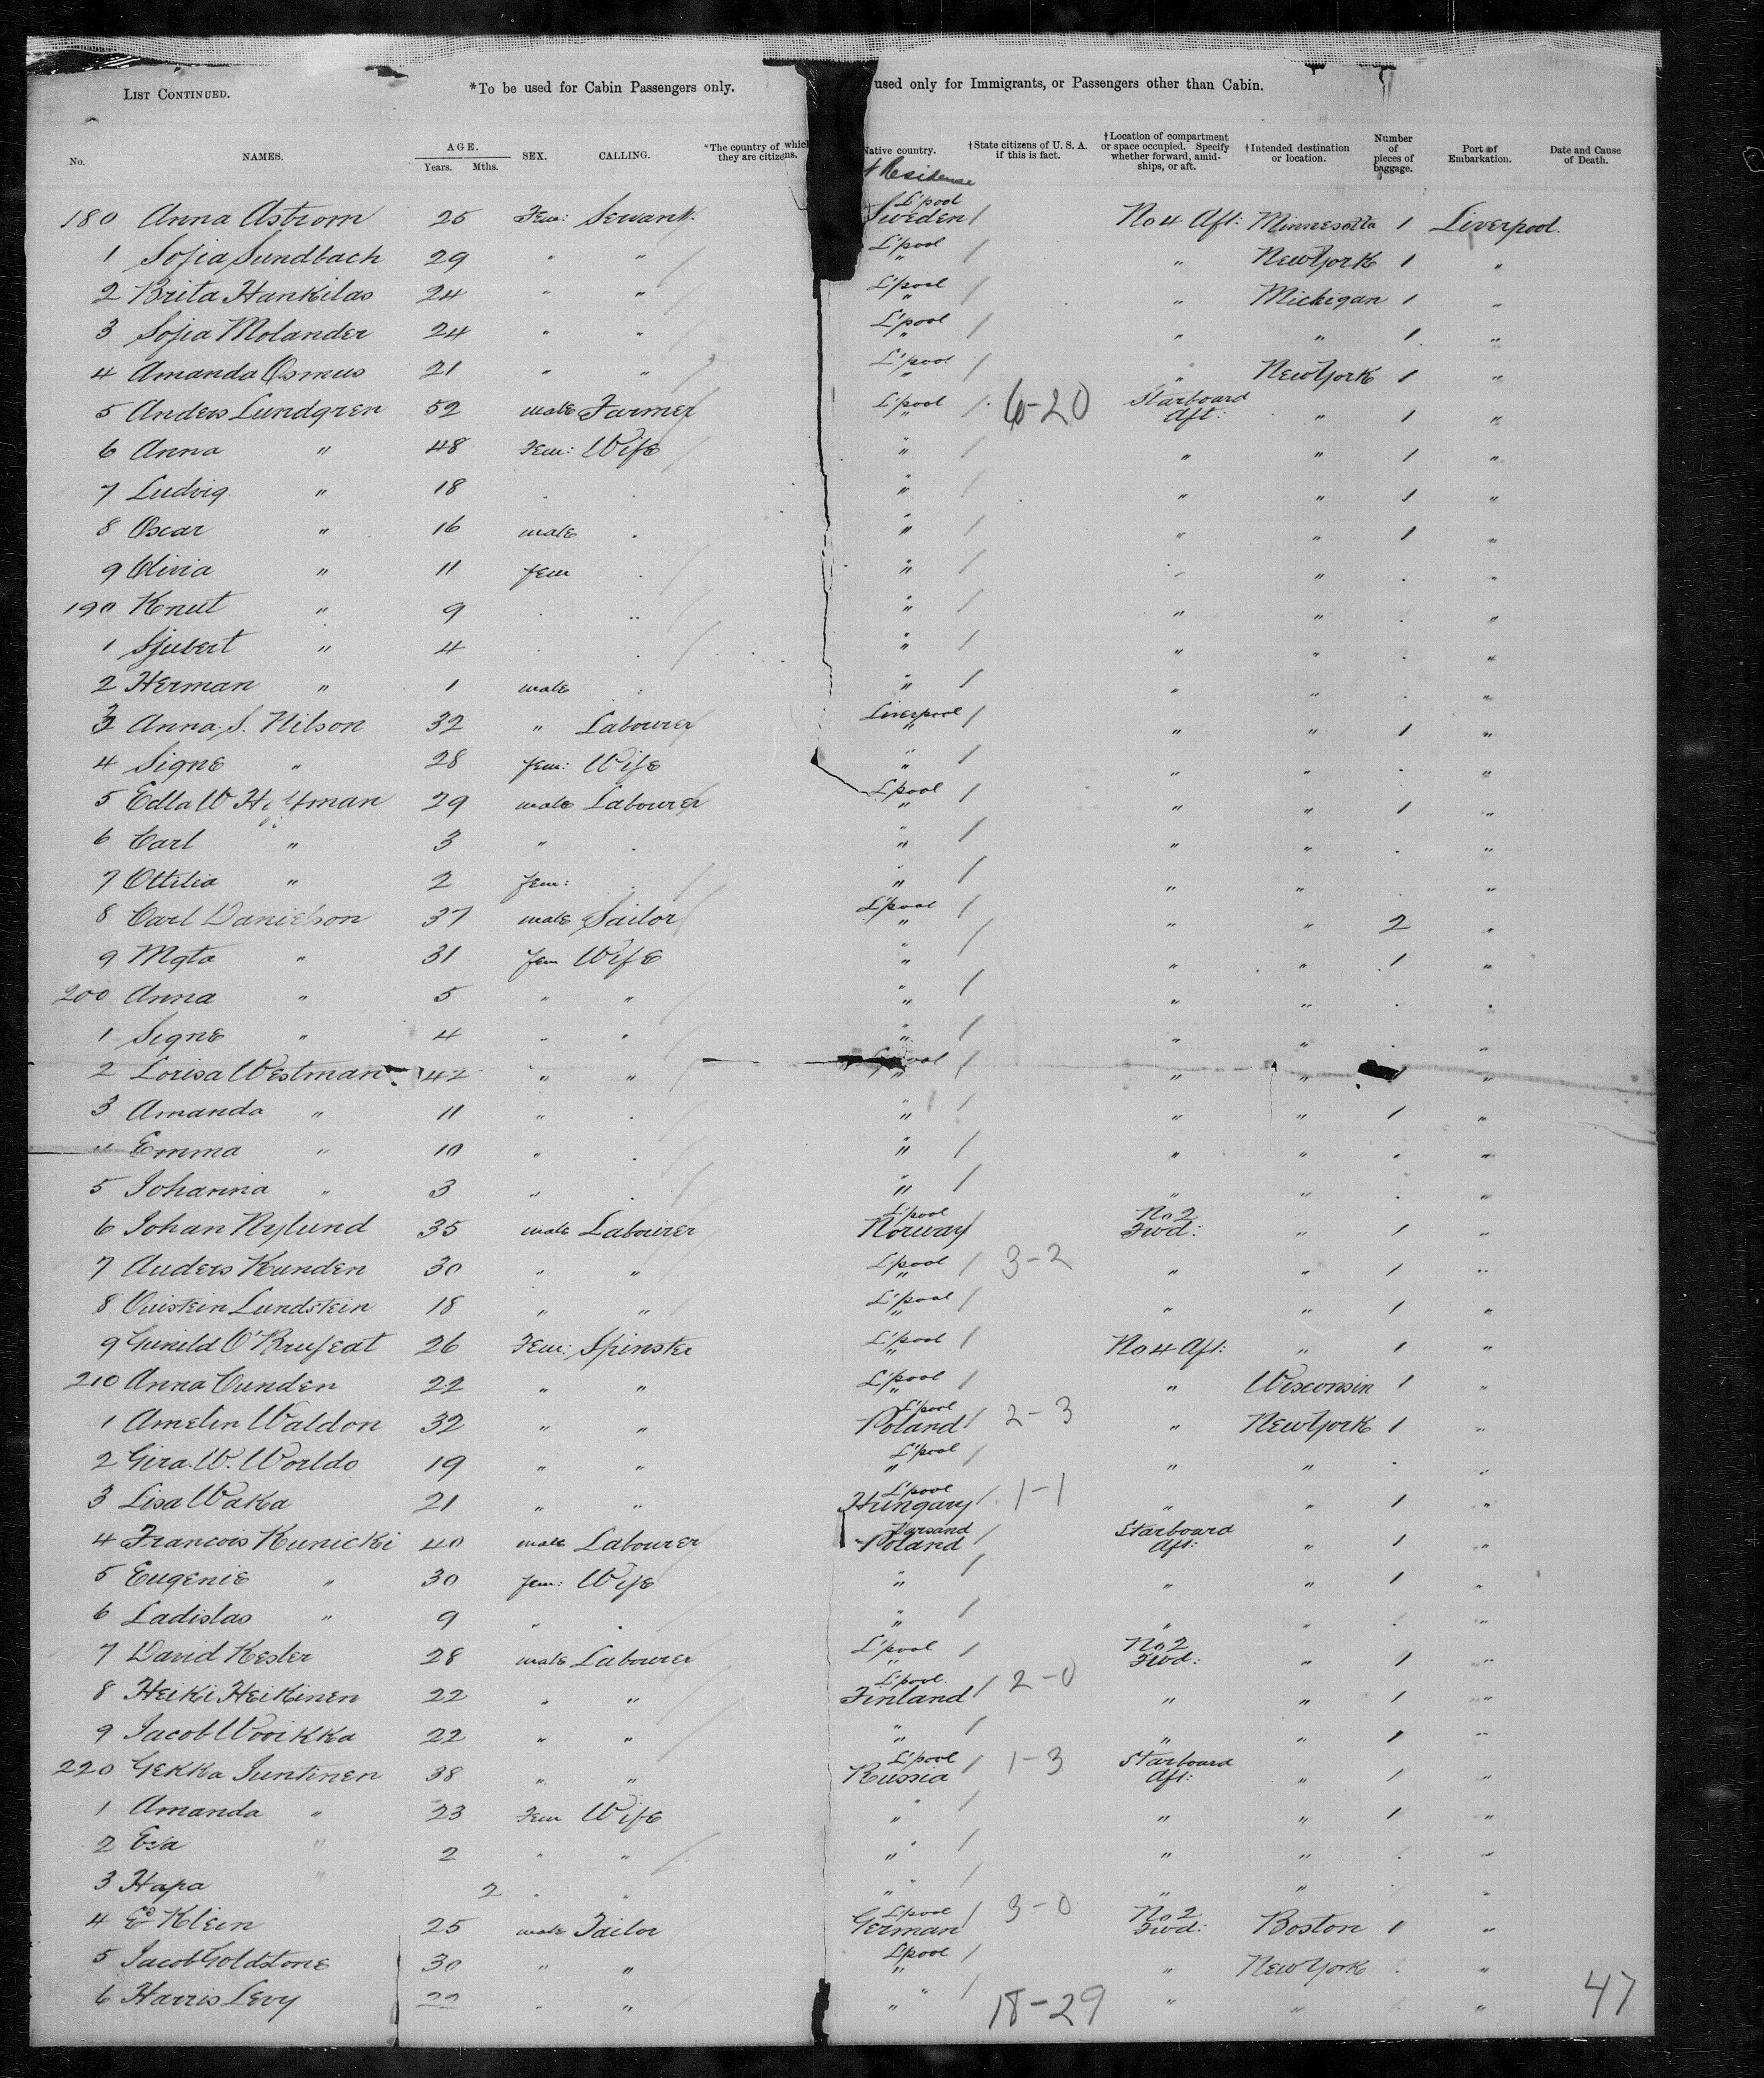 LIST CONTINUED.
*To be used for Cabin Passengers only.
used only for Immigrants, or Passengers other than Cabin.
No. NAMES. AGE. Years. Mths. SEX. CALLING. *The country of which they are citizens. Native country. †State citizens of U. S. A. if this is fact. †Location of compartment or space occupied. Specify whether forward, amidships, or aft. †Intended destination or location. Number of pieces of baggage. Port of Embarkation. Date and Cause of Death.
& Residence
180 Anna Astrom 25 Fem: Servant L'pool Sweden / No 4 Aft: Minnesotta 1 Liverpool.
1 Sofia Sundbach 29 " " L'pool " / " New York 1 "
2 Brita Hankilas 24 " " L'pool " / " Michigan 1 "
3 Sofia Molander 24 " " L'pool " / " " 1 "
4 Amanda Osmus 21 " " L'pool " / " New York 1 "
5 Anders Lundgren 52 male Farmer L'pool " / 6-20 Starboard Aft: " 1 "
6 Anna " 48 Fem: Wife " " / " " 1 "
7 Ludvig " 18 . . " " / " " 1 "
8 Oscar " 16 male . " " / " " 1 "
9 Olivia " 11 fem . " " / " " . "
190 Knut " 9 . " " " / " " . "
1 Sjubert " 4 . . " " / " " . "
2 Herman " 1 male . " " / " " . "
3 Anna. S. Nilson 32 " Labourer Liverpool " / " " 1 "
4 Signe " 28 fem: Wife " " / " " . "
5 Edla W 29 male Labourer L'pool " / " " 1 "
6 Carl " 3 " . " " / " " . "
7 Ottilia " 2 fem: . " " / " " . "
8 Carl Danielson 37 male Sailor L'pool " / " " 2 "
9 Mgta " 31 fem Wife " " / " " 1 "
200 Anna " 5 " " " " / " " . "
1 Signe " 4 " " " " / " " . "
2 Lorisa Westman 42 " " L'pool " / " " 1 "
3 Amanda " 11 " . " " / " " 1 "
4 Emma " 10 " . " " / " " . "
5 Johanna " 3 " . " " / " " . "
6 Johan Nylund 35 male Labourer L'pool Norway / No 2 Fwd: " 1 "
7 Anders Kunden 30 " " L'pool " / 3-2 " " 1 "
8 Ouistein Lundstein 18 " " L'pool " / " " 1 "
9 Gunild 26 Fem: Spinster L'pool " / No 4 Aft: " 1 "
210 Anna Cunden 22 " " L'pool " / " Wisconsin 1 "
1 Amelin Waldon 32 " " L'pool Poland / 2-3 " New York 1 "
2 Gira. W. Worldo 19 " " L'pool " / " " . "
3 Lisa Waka 21 " " L'pool Hungary / 1-1 " " 1 "
4 Francois Kunicki 40 male Labourer Poland / Starboard Aft: " 1 "
5 Eugenie " 30 fem: Wife " / " " 1 "
6 Ladislas " 9 " . " " / " " . "
7 David Kesler 28 male Labourer L'pool " / No 2 Fwd: " 1 "
8 Heiki Heikinen 22 " " L'pool. Finland / 2-0 " " 1 "
9 Jacob Wooikka 22 " " " / " " 1 "
220 Gekka Juntinen 38 " " L'pool Russia / 1-3 Starboard Aft: " 1 "
1 Amanda " 23 Fem Wife " / " " 1 "
2 Eva " 2 " " " " / " " . "
3 Hapa " 2 " " " " / " " . "
4 Ed Klein 25 male Tailor L'pool German / 3-0 No 2 Fwd: Boston 1 "
5 Jacob Goldstone 30 " " L'pool " / " New York . "
6 Harris Levy 22 " " " " / 18-29 " " . "
47